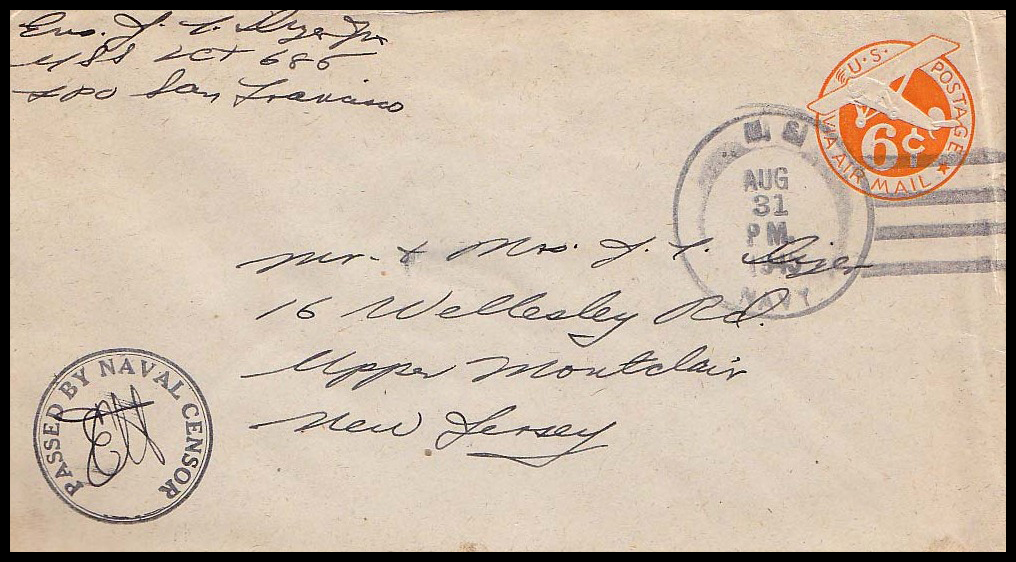 Ens. J. L. Dwyer Jr
USS LCT 686
FPO San Francisco
U.S. POSTAGE
6¢
VIA AIR MAIL
U. S.
AUG
31
P M.
1945
NAVY
Mr. & Mrs. J. L. Dwyer
16 Wellesley Rd.
Upper Montclair
New Jersey
PASSED BY NAVAL CENSOR